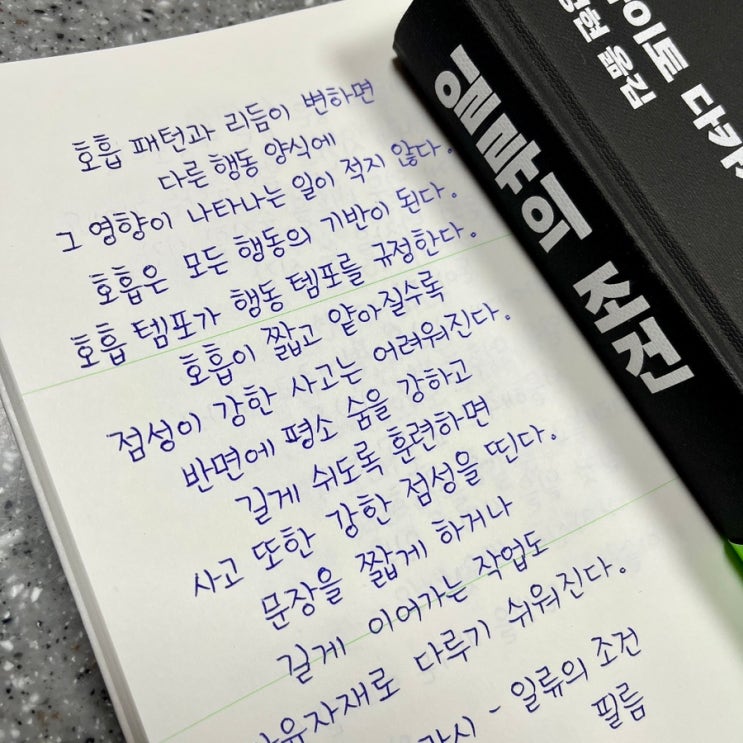 호흡 패턴과 리듬이 변하면
다른 행동 양식에
그 영향이 나타나는 일이 적지 않다.
호흡은 모든 행동의 기반이 된다.
호흡 템포가 행동 템포를 규정한다.
호흡이 짧고 얕아질수록
점성이 강한 사고는 어려워진다.
반면에 평소 숨을 강하고
길게 쉬도록 훈련하면
사고 또한 강한 점성을 띤다.
문장을 짧게 하거나
길게 이어가는 작업도
자유자재로 다루기 쉬워진다.
일류의 조건
필름
일류의 조건
다카
옮김